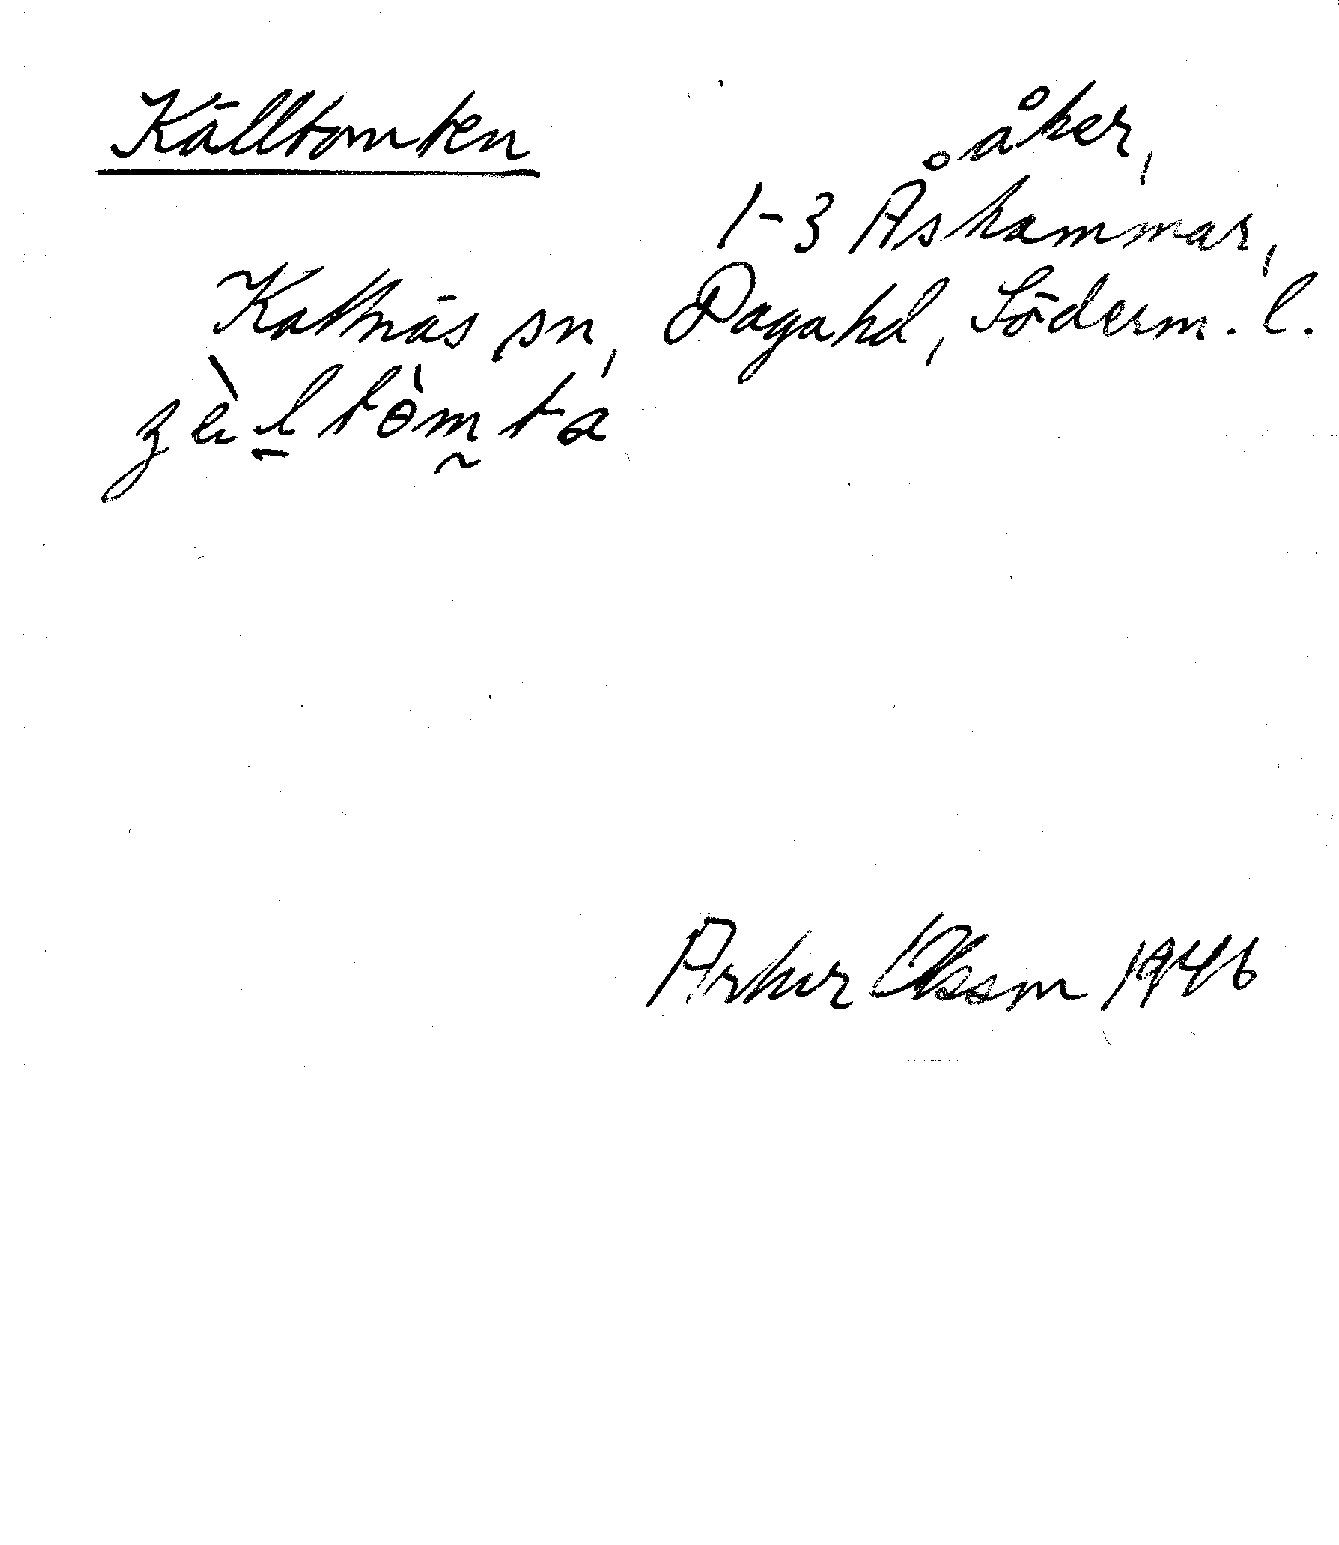 Källtomten
åker,
1-3 Åshammar,
Kattnäs sn, Daga hd, Söderm. l.
Artur Olsson 1946